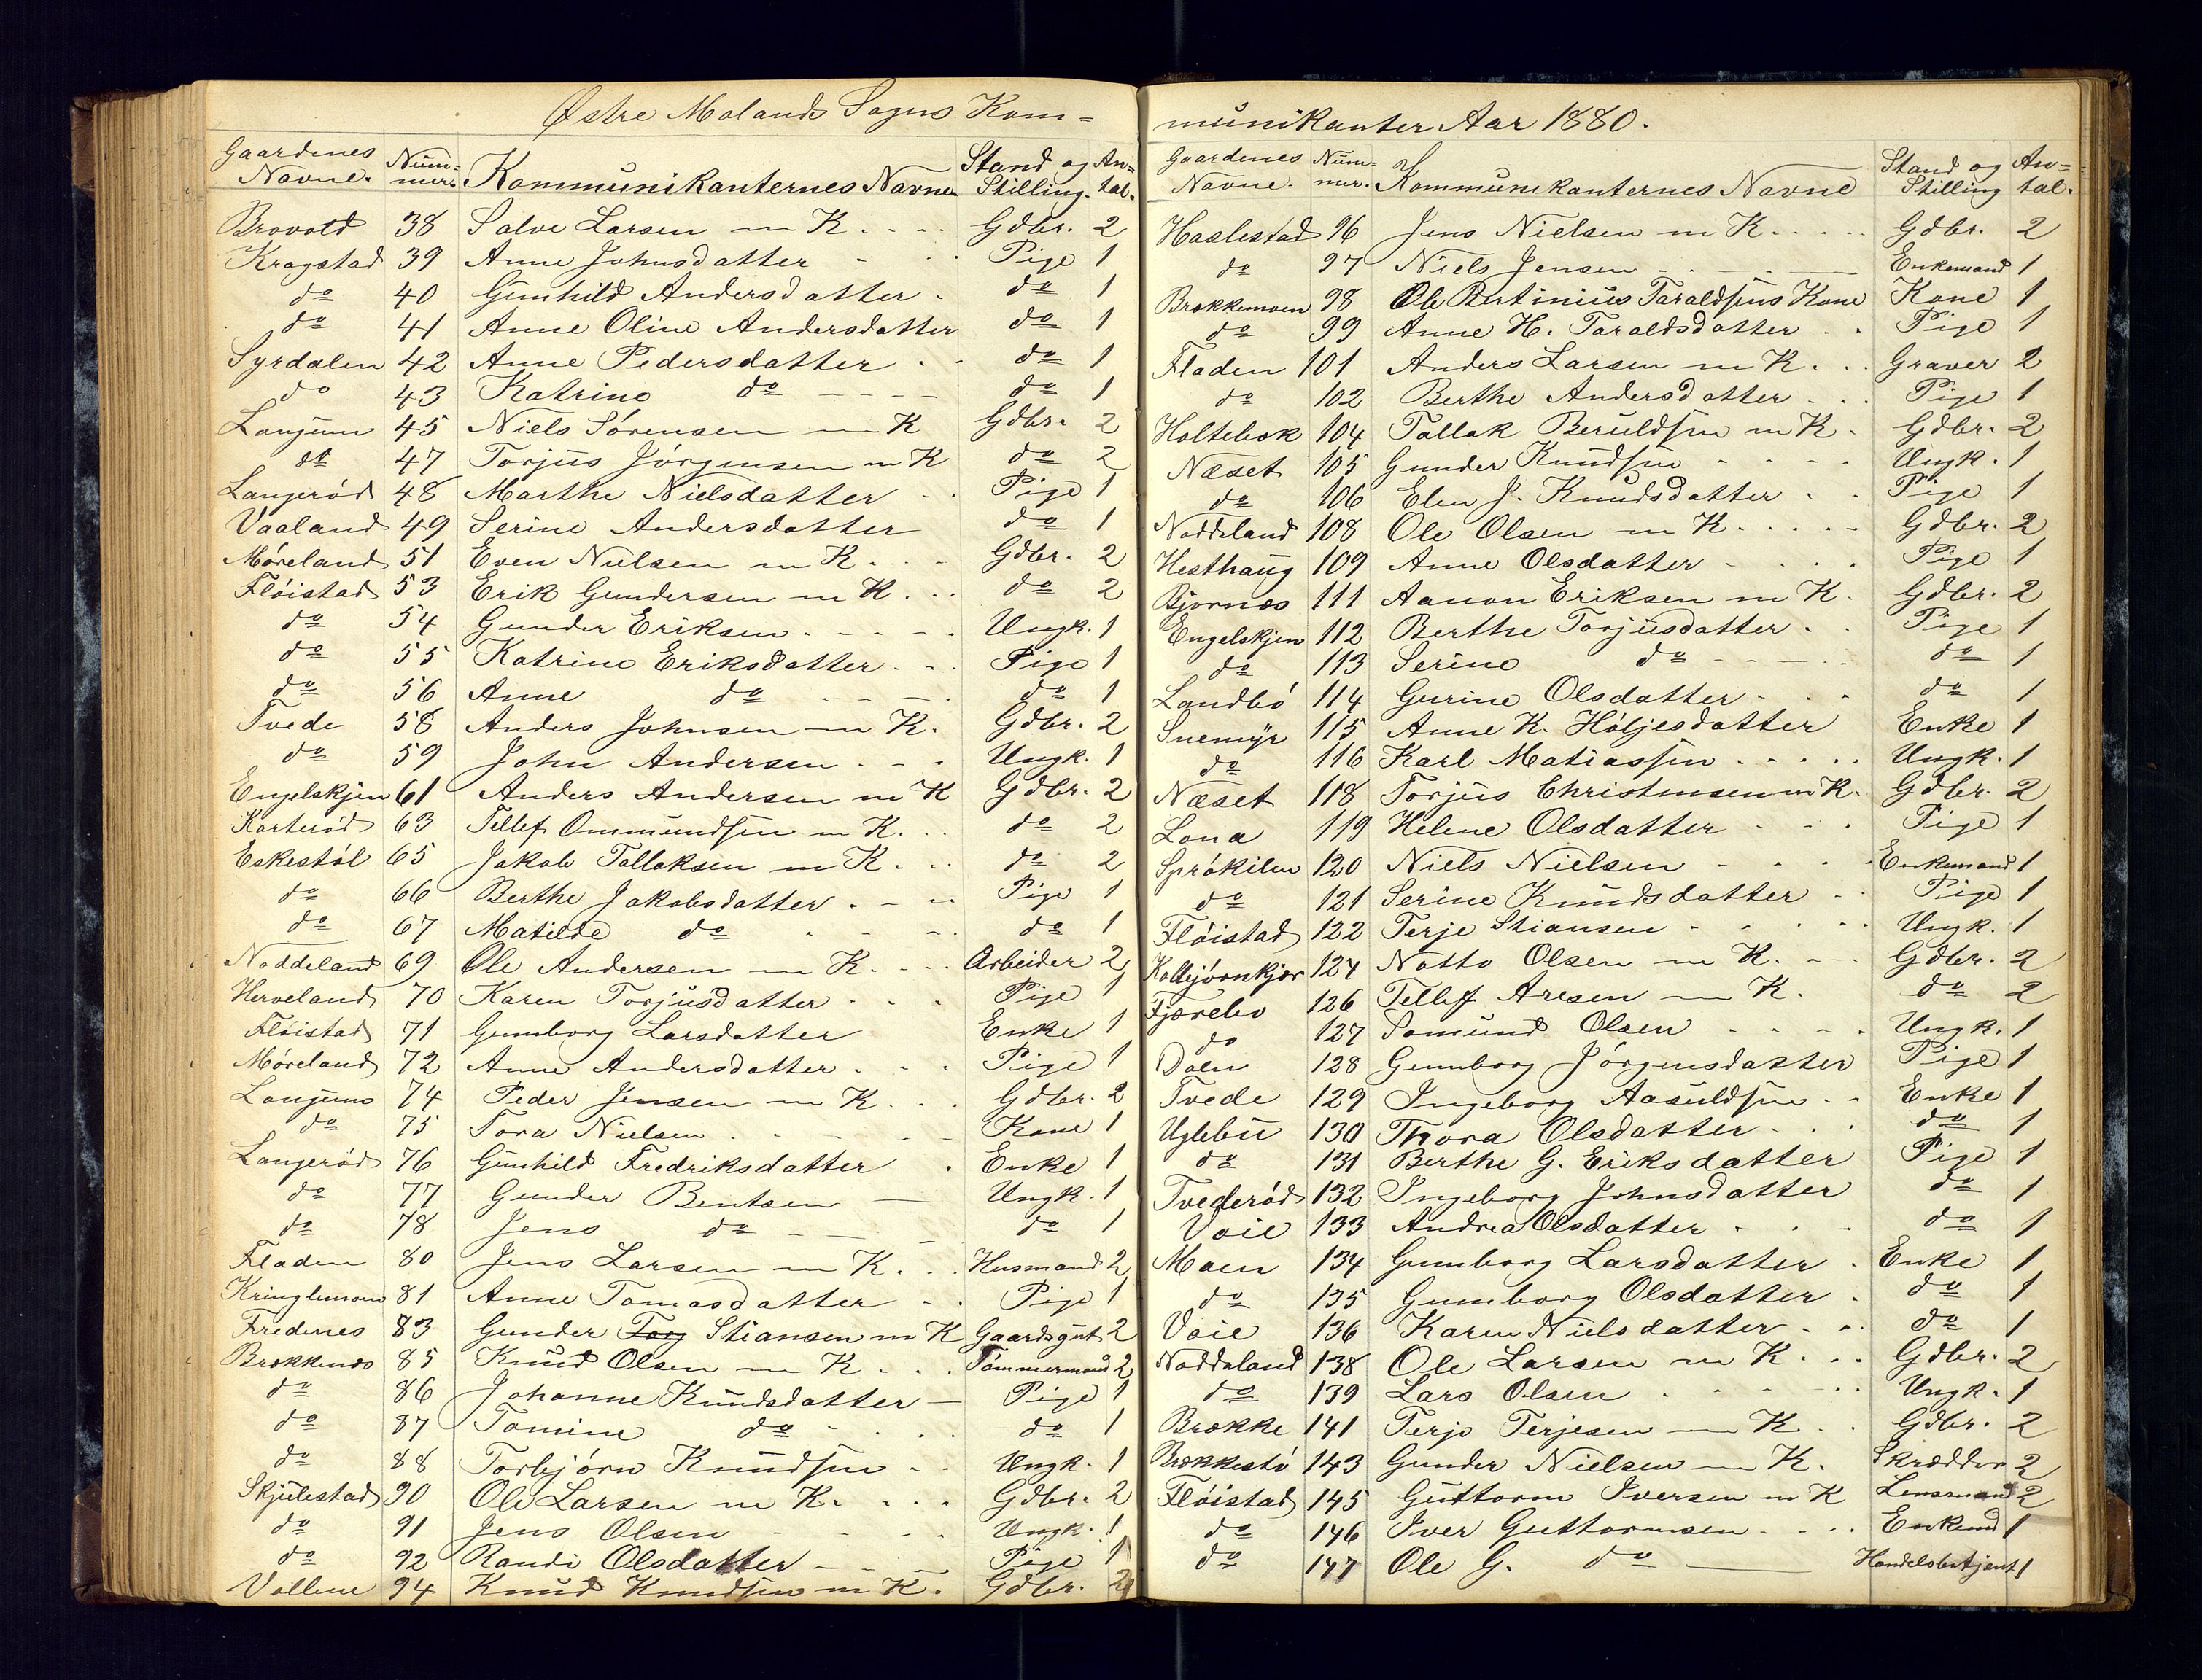 Østre Molands Sogns Kom=
Gaardenes Navne. Num=mer. Kommunikanternes Navne Stand og Stilling. An=tal.
Brovold 38 Salve Larsen m K. Gdbr. 2
Kragstad 39 Anne Johnsdatter Pige 1
do 40 Gunhild Andersdatter do 1
do 41 Anne Oline Andersdatter do 1
Syrdalen 42 Anne Pedersdatter do 1
do 43 Katrine do do 1
Langum 45 Niels Sørensen m K Gdbr. 2
do 47 Torjus Jørgensen m K do 2
Langerød 48 Marthe Nielsdatter Pige 1
Vaaland 49 Serine Andersdatter do 1
Møreland 51 Even Nielsen m K. Gdbr. 2
Fløistad 53 Erik Gundersen m K. do 2
do 54 Gunder Eriksen Ungk. 1
do 55 Katrine Eriksdatter Pige 1
do 56 Anne do do 1
Tvede 58 Anders Johnsen m K. Gdbr. 2
do 59 John Andersen Ungk. 1
Engelskjen 61 Anders Andersen m K Gdbr. 2
Karterød 63 Tellef Ommundsen m K. do 2
Eskestøl 65 Jakob Tallaksen m K. do 2
do 66 Berthe Jakobsdatter Pige 1
do 67 Matilde do do 1
Noddeland 69 Ole Andersen m K. Arbeider 2
Herveland 70 Karen Torjusdatter Pige 1
Fløistad 71 Gunborg Larsdatter Enke 1
Møreland 72 Anne Andersdatter Pige 1
Langum 74 Peder Jensen m K. Gdbr. 2
do 75 Tora Nielsen Kone 1
Langerød 76 Gunhild Fredriksdatter Enke 1
do 77 Gunder Bentsen Ungk. 1
do 78 Jens do do 1
Fladen 80 Jens Larsen m K. Husmand 2
Kringlemoen 81 Anne Tomasdatter Pige 1
Fredenes 83 Gunder Torg Stiansen m K Gaardsgut 2
Brækkenes 85 Knud Olsen m K Tømmermand 2
do 86 Johanne Knudsdatter Pige 1
do 87 Tomine do do 1
do 88 Torbjørn Knudsen Ungk. 1
Skjulestad 90 Ole Larsen m K. Gdbr. 2
do 91 Jens Olsen Ungk. 1
do 92 Randi Olsdatter Pige 1
Vollene 94 Knud Knudsen m K. Gdbr. 2
munikanter Aar 1880.
Gaardenes Navne. Num=mer. Kommunikanternes Navne Stand og Stilling An=tal.
Haslestad 96 Jens Nielsen m K. Gdbr. 2
do 97 Niels Jensen Enkemand 1
Brækkemoen 98 Ole Bertinius Taraldsens Kone Kone 1
do 99 Anne H. Taraldsdatter Pige 1
Fladen 101 Anders Larsen m K. Graver 2
do 102 Berthe Andersdatter Pige 1
Holtebæk 104 Tallak Beruldsen m K. Gdbr. 2
Næset 105 Gunder Knudsen Ungk. 1
do 106 Elen J. Knudsdatter Pige 1
Noddeland 108 Ole Olsen m K. Gdbr. 2
Hesthaug 109 Anne Olsdatter Pige 1
Bjornæs 111 Aanon Eriksen m K. Gdbr. 2
Engelskjen 112 Berthe Torjusdatter Pige 1
do 113 Serine do do 1
Landbø 114 Gurine Olsdatter do 1
Snemyr 115 Anne K. Høljesdatter Enke 1
do 116 Karl Matiassen Ungk. 1
Næset 118 Torjus Christensen m K. Gdbr. 2
Lona 119 Helene Olsdatter Pige 1
Sprøkilen 120 Niels Nielsen Enkemand 1
do 121 Serine Knudsdatter Pige 1
Fløistad 122 Terje Stiansen Ungk. 1
124 Notto Olsen m K. Gdbr. 2
Fjærebo 126 Tellef Aresen m K. do 2
do 127 Somund Olsen Ungk. 1
Dalen 128 Gunborg Jørgensdatter Pige 1
Tvede 129 Ingeborg Aasuldsen Enke 1
Uglebu 130 Thora Olsdatter do 1
do 131 Berthe G. Eriksdatter Pige 1
Tvederød 132 Ingeborg Johnsdatter do 1
Voie 133 Andrea Olsdatter do 1
Moen 134 Gunborg Larsdatter Enke 1
do 135 Gunborg Olsdatter do 1
Voie 136 Karen Nielsdatter do 1
Noddeland 138 Ole Larsen m K. Gdbr. 2
do 139 Lars Olsen Ungk. 1
Brække 141 Terje Terjesen m K. Gdbr. 2
Brækkestø 143 Gunder Nielsen m K. Skrædder 2
Fløistad 145 Guttorm Iversen m K Lensmand 2
do 146 Iver Guttormsen Enkemd 1
do 147 Ole G. do Handelsbetjent 1